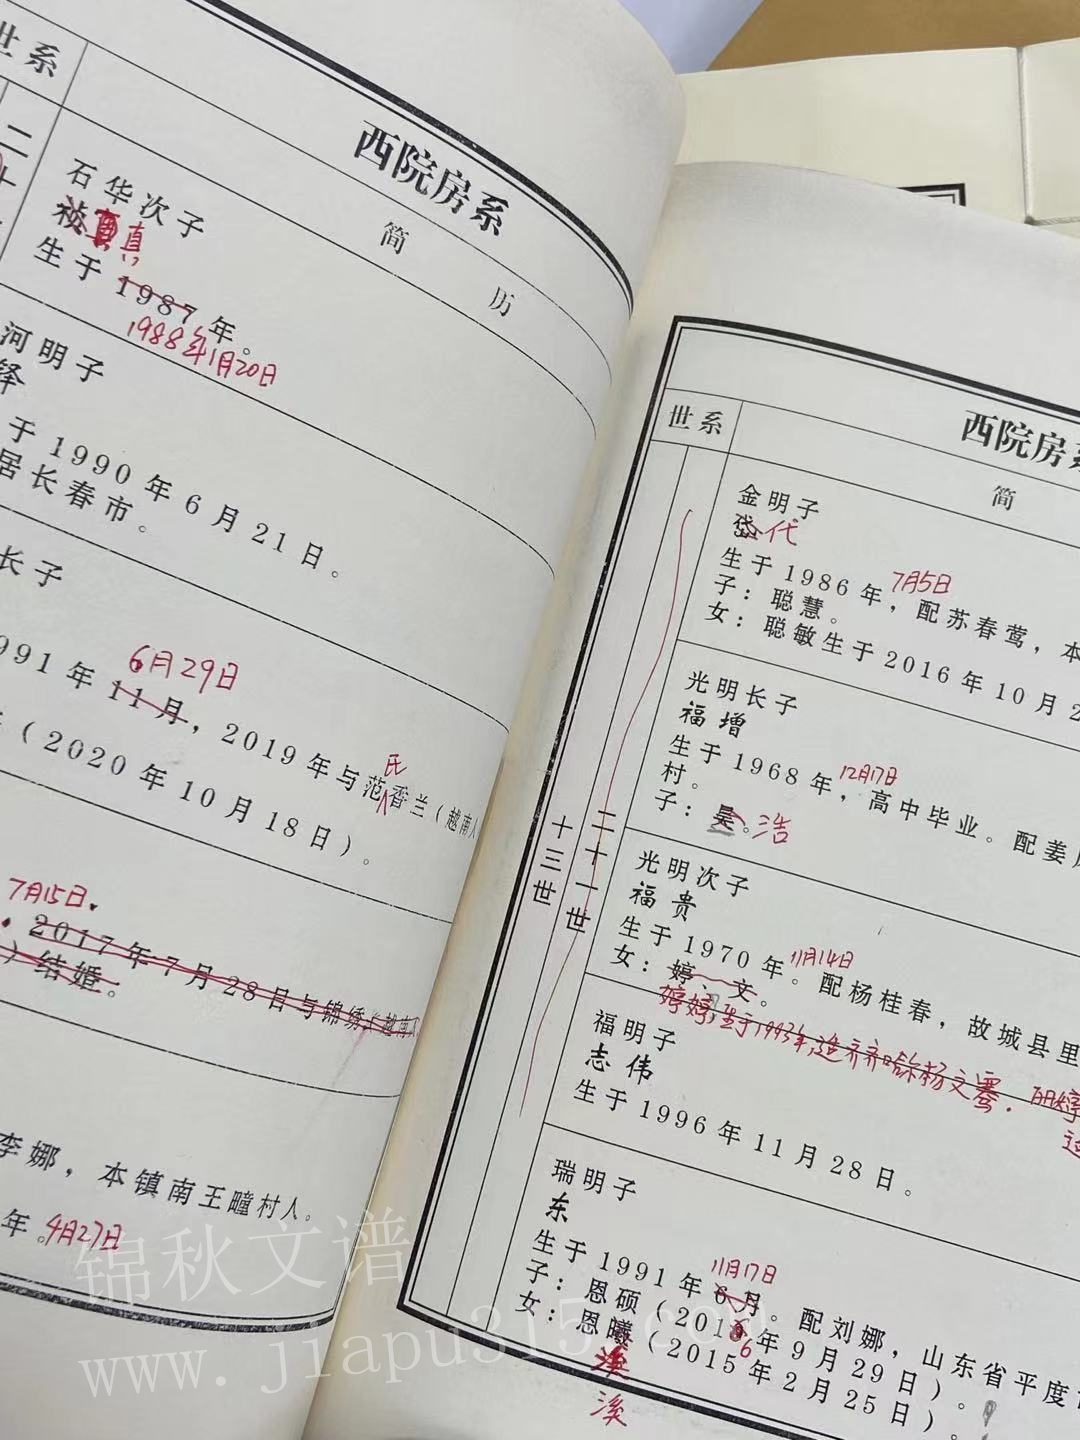 世系
西院房系
简 历
二十
石华次子
祯真真
生于1987年。
1988年1月20日
河明子
铎
于1990年6月21日。
居长春市。
长子
6月29日
991年11月，2019年与范香兰（越南人
氏
（2020年10月18日）。
7月15日.
2017年7月28日与锦绣（越南人
）结婚。
李娜，本镇南王疃村人。
年。4月27日
世系
西院房系
简
十三世
二十一世
金明子
岱代
7月5日
生于1986年，配苏春莺，本
子：聪慧。
女：聪敏生于2016年10月2
光明长子
福增
12月17日
生于1968年，高中毕业。配姜
村。
子：昊。浩
光明次子
福贵
11月14日
生于1970年。配杨桂春，故城县里
女：婷、文。
婷婷,生于1993年,适齐齐哈尔杨文骞.
适
福明子
志伟
生于1996年11月28日。
瑞明子
东
11月17日
生于1991年6月。配刘娜，山东省平度
子：恩硕（2013年9月29日）。
6
女：恩曦（2015年2月25日）。
溪
溪
锦秋文谱
www.jiapu315.com